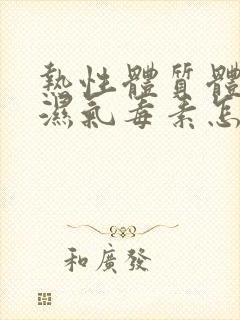 熱性體質體
濕氣毒素怎
和廣發